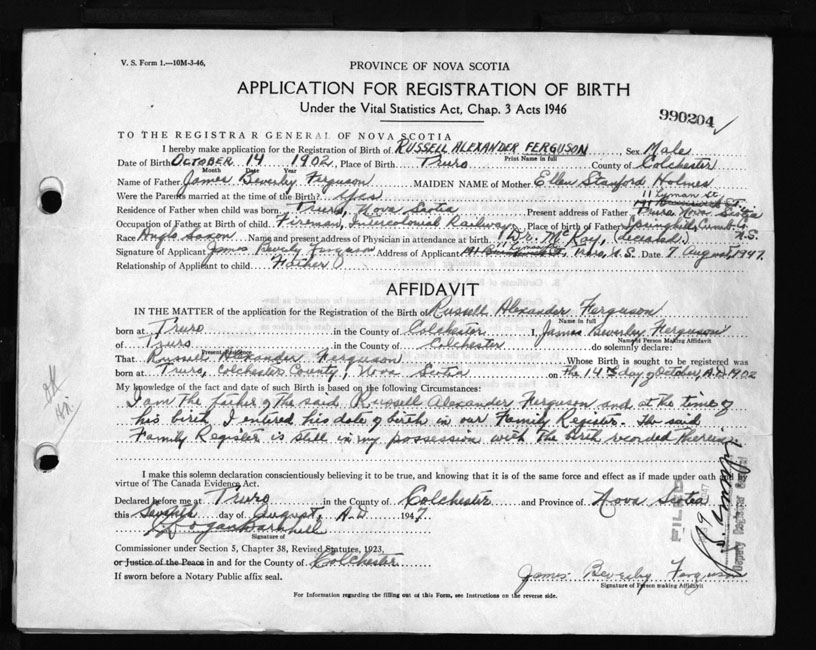 V. S. Form 1.—10M-3-46,
PROVINCE OF NOVA SCOTIA
APPLICATION FOR REGISTRATION OF BIRTH
Under the Vital Statistics Act, Chap. 3 Acts 1946
990204 ✓
TO THE REGISTRAR GENERAL OF NOVA SCOTIA
I hereby make application for the Registration of Birth of RUSSELL ALEXANDER FERGUSON Sex Male
Print Name in full
Date of Birth OCTOBER 14 1902, Place of Birth Truro County of Colchester
Month Date Year
Name of Father James Beverly Ferguson MAIDEN NAME of Mother Ellen Stanford Holmes
Were the Parents married at the time of the Birth? Yes 11 Lyman St.
Residence of Father when child was born Truro, Nova Scotia Present address of Father Truro Nova Scotia
Occupation of Father at Birth of child Fireman, Intercolonial Railway Place of Birth of Father Springhill, Cumb. Co. N.S.
Race Anglo Saxon Name and present address of Physician in attendance at birth Dr. McKay, (deceased.)
Signature of Applicant James Beverly Ferguson Address of Applicant Truro, N.S. Date 7 August, 1947.
Relationship of Applicant to child Father
AFFIDAVIT
IN THE MATTER of the application for the Registration of the Birth of Russell Alexander Ferguson
Name in full
born at Truro in the County of Colchester I, James Beverley Ferguson
Name of Person Making Affidavit
of Truro in the County of Colchester do solemnly declare:
Present Address
That Russell Alexander Ferguson Whose Birth is sought to be registered was
born at Truro, Colchester County, Nova Scotia on the 14th day of October, A.D. 1902
My knowledge of the fact and date of such Birth is based on the following Circumstances:
I am the father of the said Russell Alexander Ferguson and at the time of
his birth, I entered his date of birth in our Family Register. The said
Family Register is still in my possession with the birth recorded therein.
I make this solemn declaration conscientiously believing it to be true, and knowing that it is of the same force and effect as if made under oath and by
virtue of The Canada Evidence Act.
Declared before me at Truro in the County of Colchester and Province of Nova Scotia
this Seventh day of August, A.D 1947
Signature of
Commissioner under Section 5, Chapter 38, Revised Statutes, 1923,
or Justice of the Peace in and for the County of Colchester
If sworn before a Notary Public affix seal.
James Beverley Ferguson
Signature of Person making Affidavit
For Information regarding the filling out of this Form, see Instructions on the reverse side.
FILED
Deputy Registrar General